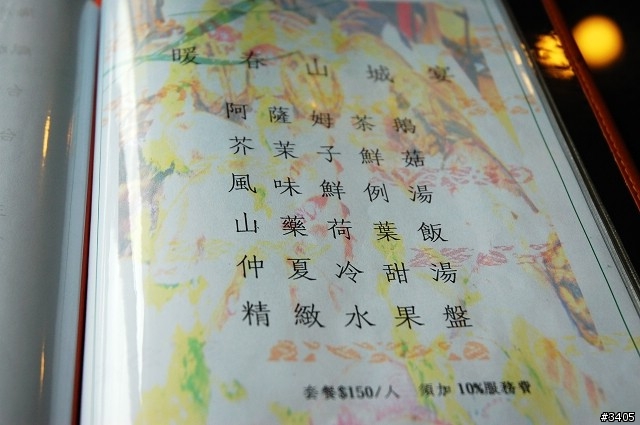 暖春山城宴
阿薩姆茶鵝
芥茉子鮮菇
風味鮮例湯
山藥荷葉飯
仲夏冷甜湯
精緻水果盤
套餐$150/人 須加10%服務費
#3405